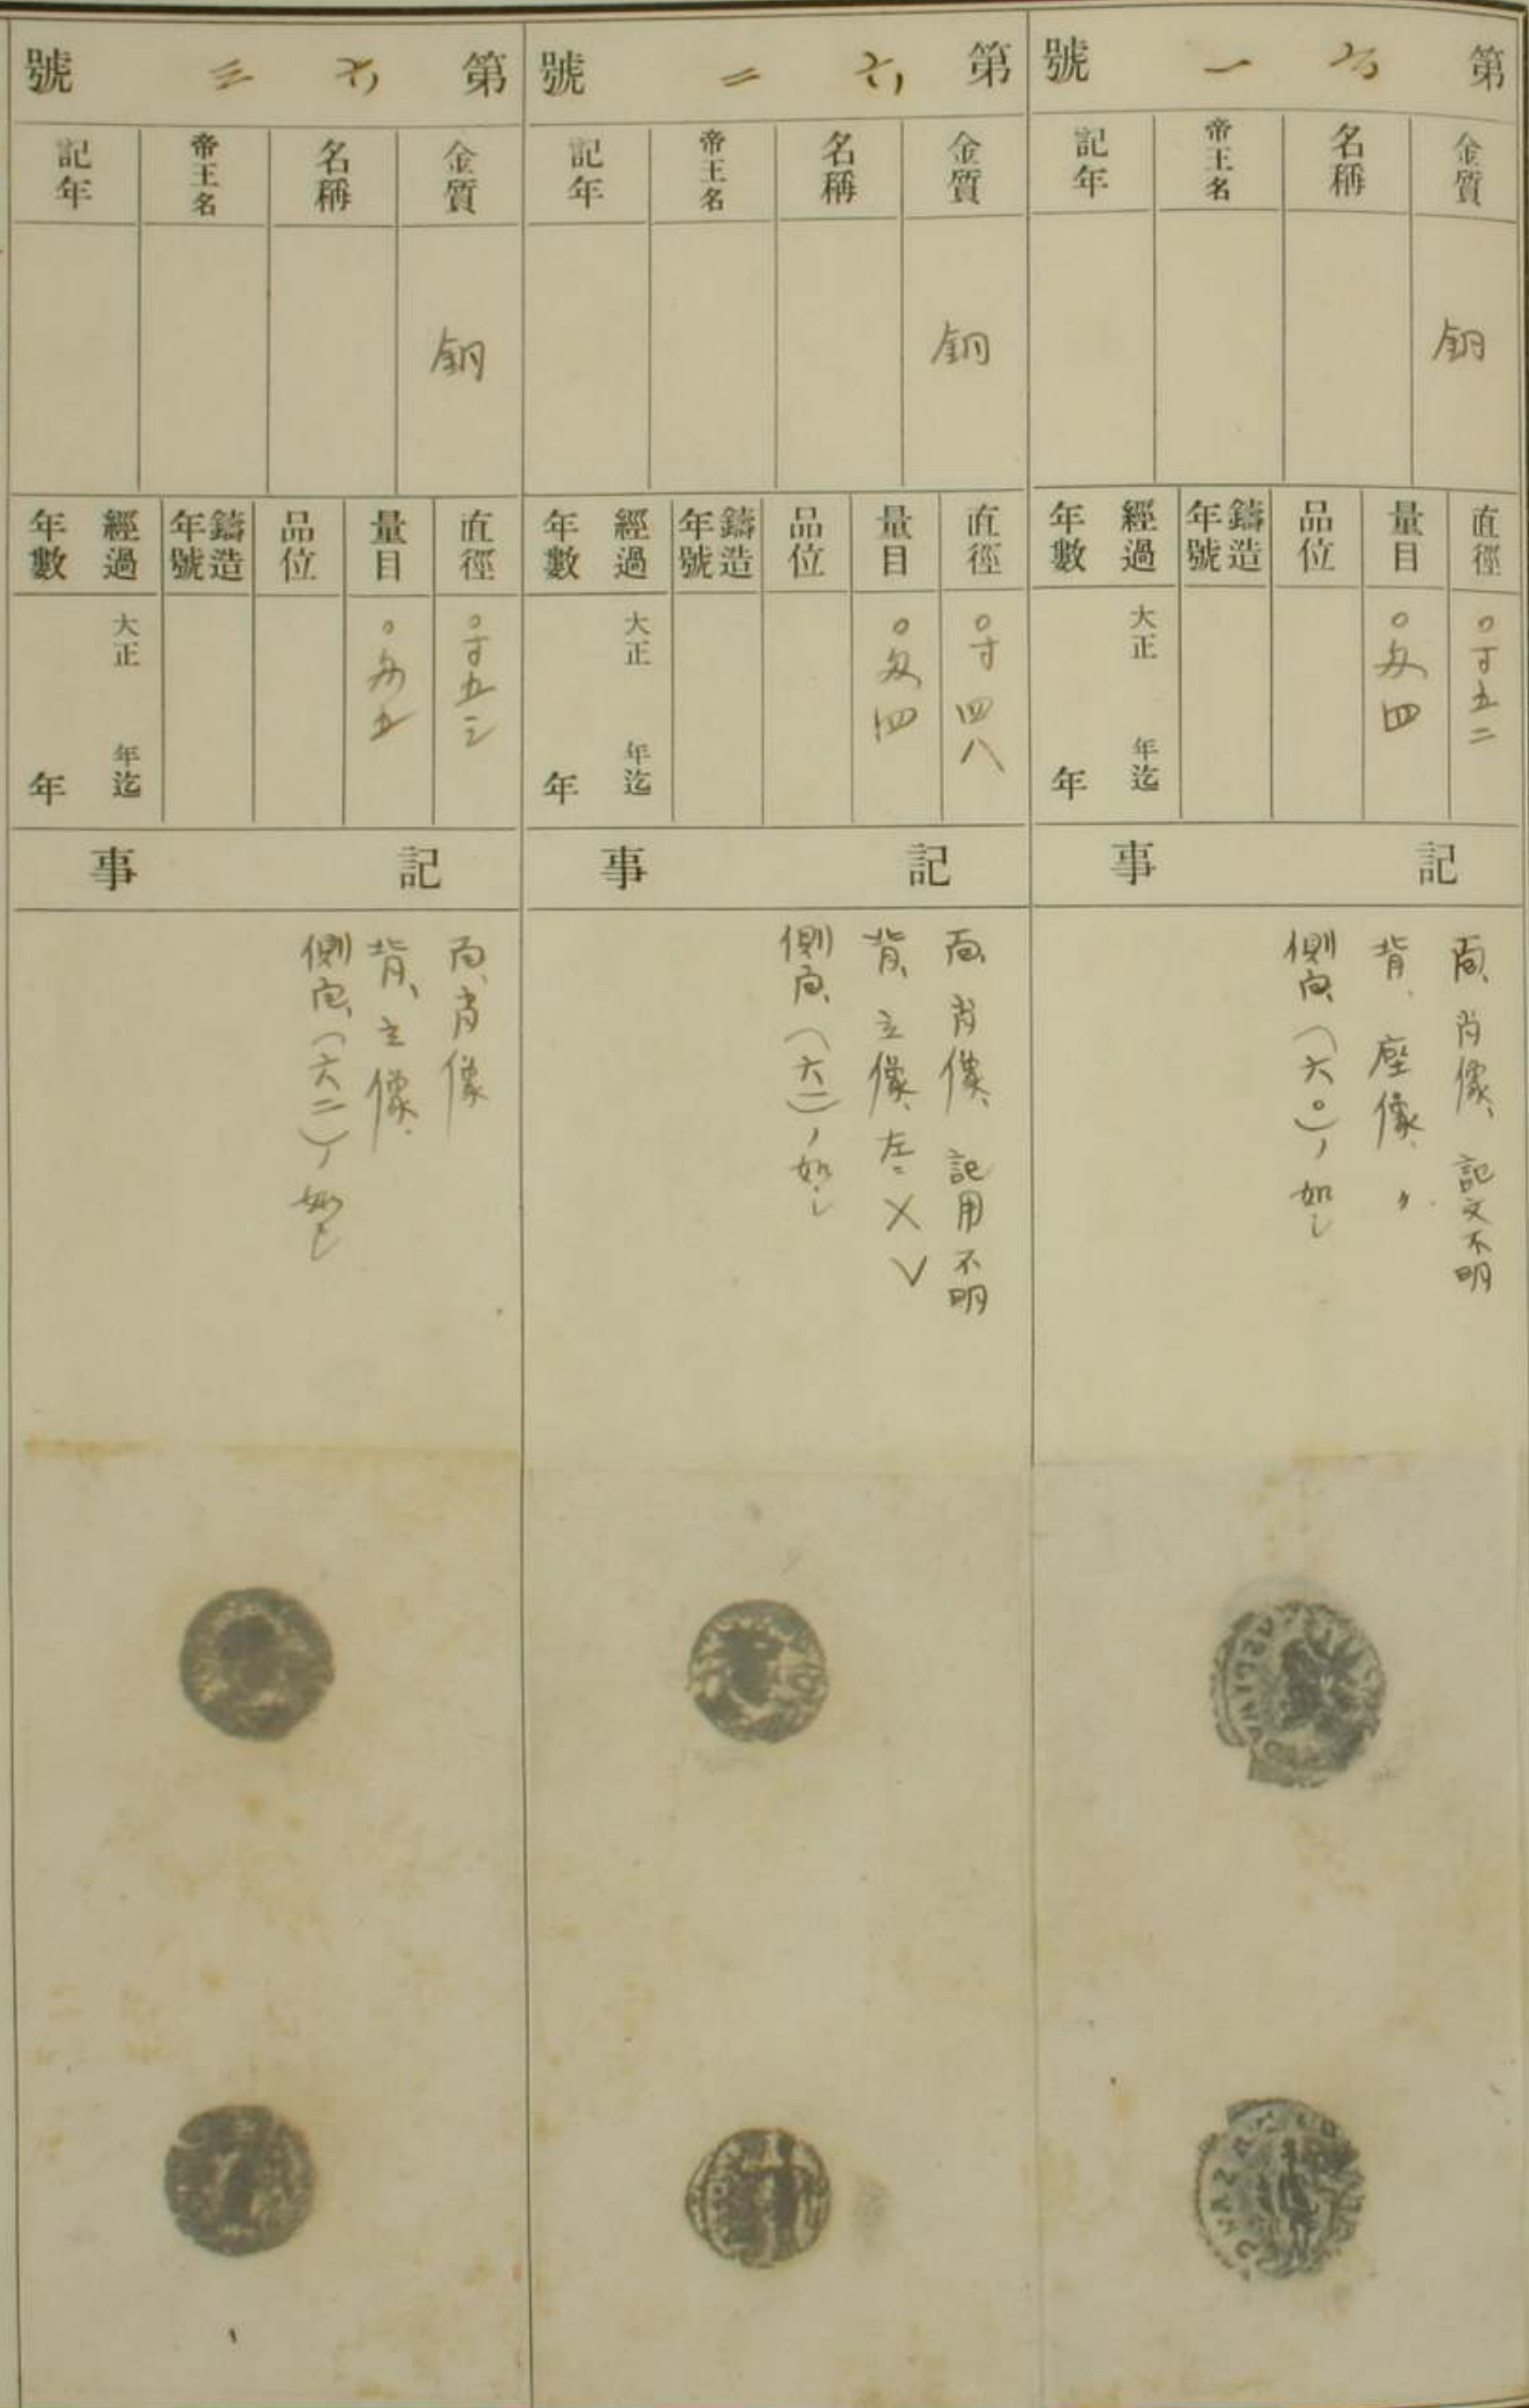 第 六一 號
金質
名稱
帝王名
記年
銅
直徑
量目
品位
鑄造年號
經過年數
〇寸五二
〇匁四
大正 年迄
年
記事
面、肖像、記文不明
背、座像、〃
側面、(六〇)ノ如シ
第 六二 號
金質
名稱
帝王名
記年
銅
直徑
量目
品位
鑄造年號
經過年數
〇寸四八
〇匁四
大正 年迄
年
記事
面、肖像、記用不明
背、立像、左ニXV
側面、(六一)ノ如シ
第 六三 號
金質
名稱
帝王名
記年
銅
直徑
量目
品位
鑄造年號
經過年數
〇寸五三
〇匁五
大正 年迄
年
記事
面、肖像
背、立像、
側面、(六二)ノ如シ